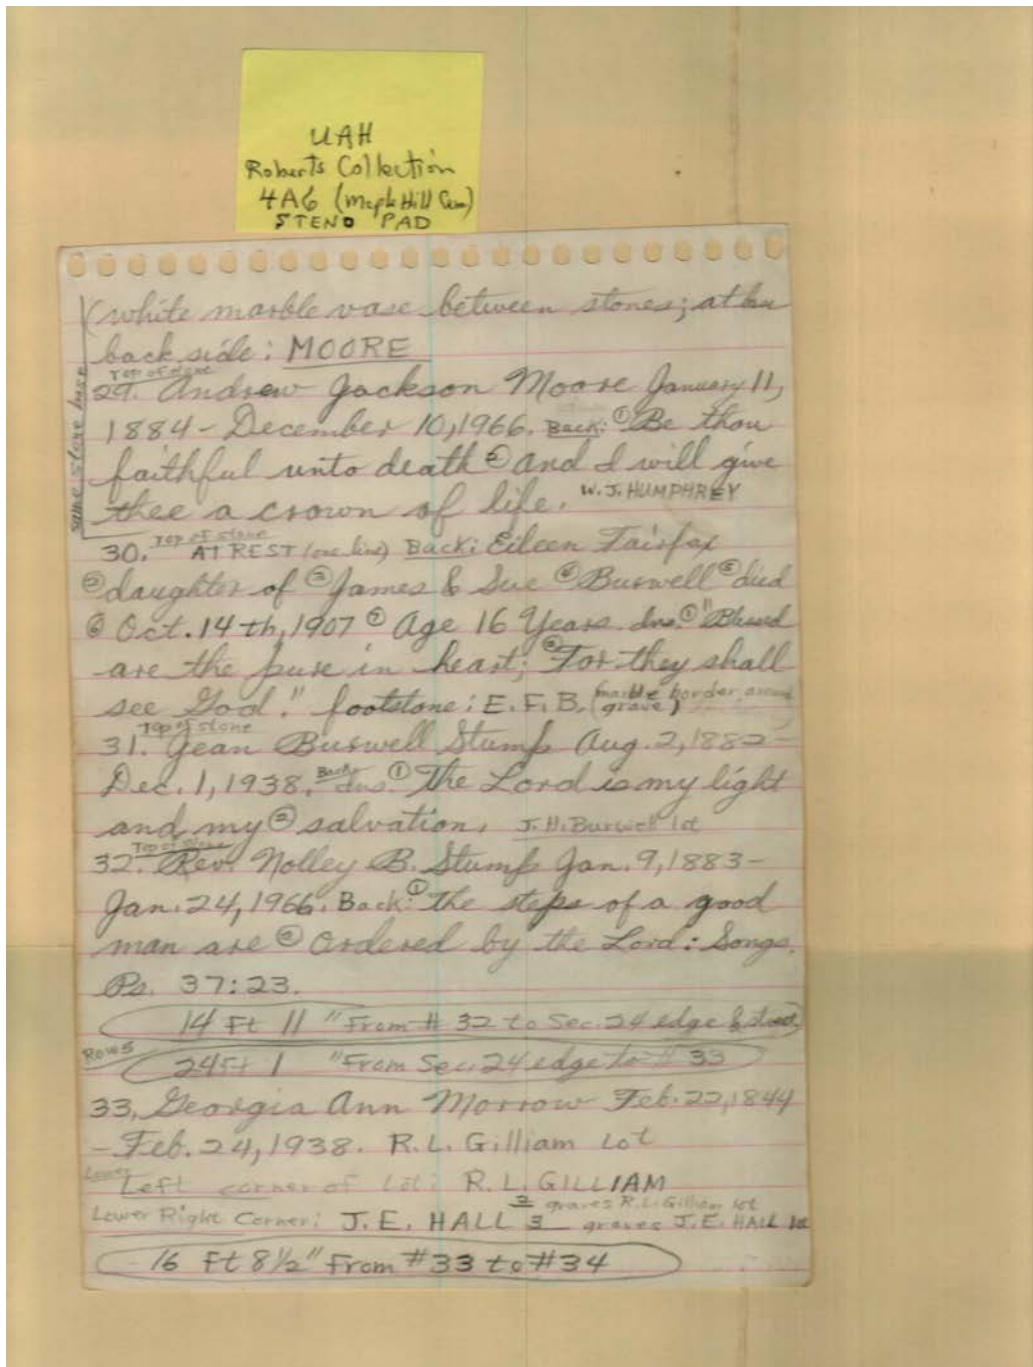 UAH
Roberts Collection
4A6 (Maple Hill Cem)
STENO PAD
(white marble vase between stones; at
back side: MOORE
Top of stone
29. Andrew Jackson Moore January 11,
1884 - December 10, 1966. Back: ① Be thou
faithful unto death ② and I will give
thee a crown of life. W. J. HUMPHREY
same stone base
Top of stone
30. AT REST (one line) Back: Eileen Fairfax
② daughter of ③ James & Sue ④ Burwell ⑤ died
⑥ Oct. 14th, 1907 ⑦ Age 16 Years. ins. ① "Blessed
are the pure in heart; ② For they shall
see God." footstone: E. F. B. (marble border around
grave)
Top of stone
31. Jean Burwell Stump Aug. 2, 1882 -
Dec. 1, 1938. Back: ins. ① The Lord is my light
and my ② salvation. J. H. Burwell lot
Top of stone
32. Rev. Nolley B. Stump Jan. 9, 1883 -
Jan. 24, 1966. Back: ① the steps of a good
man are ② ordered by the Lord: Songs.
Ps. 37:23.
14 Ft 11 " From # 32 to Sec. 24 edge & street
Rows
24 Ft 1 " From Sec. 24 edge to # 33
33. Georgia Ann Morrow Feb. 22, 1844
- Feb. 24, 1938. R. L. Gilliam Lot
Lower
Left corner of Lot: R. L. GILLIAM
2 graves R. L. Gilliam lot
Lower Right Corner: J. E. HALL 3 graves J. E. HALL lot
16 Ft 8½" From #33 to #34